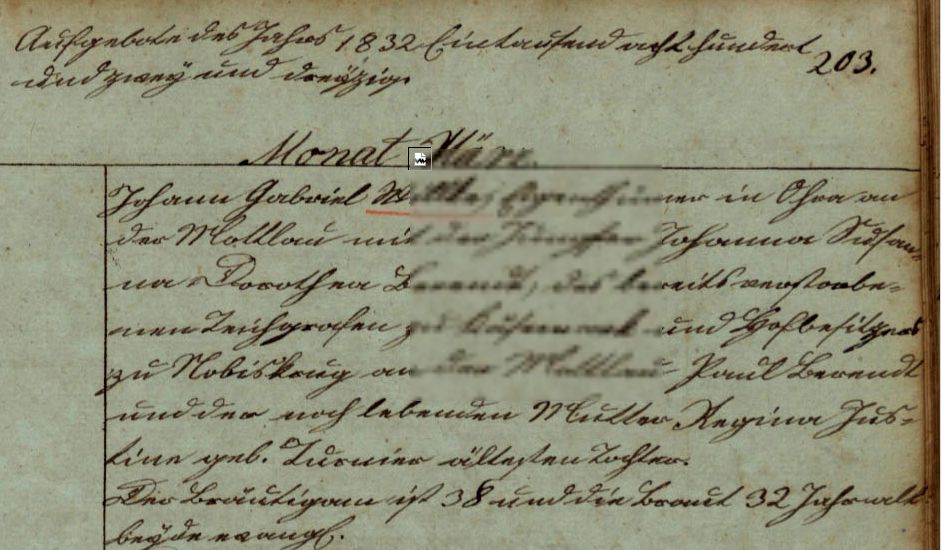 Aufgebote des Jahrs 1832 Eintausend acht hundert
203.
und zwey und dreyzig.
Monat März.
Johann Gabriel in Ohra an
der Mottlau mit der Jungfer Johanna Susan-
na Dorothea Berendt, des bereits verstorbe-
nen Teichgrafen und Hofbesitzers
zu Nobiskrug an der Mottlau Paul Berendt
und der noch lebenden Mutter Regina Jus-
tine geb. Turnier ältesten Tochter.
Der Bräutigam ist 38 und die Braut 32 Jahr alt
beyde evangl.